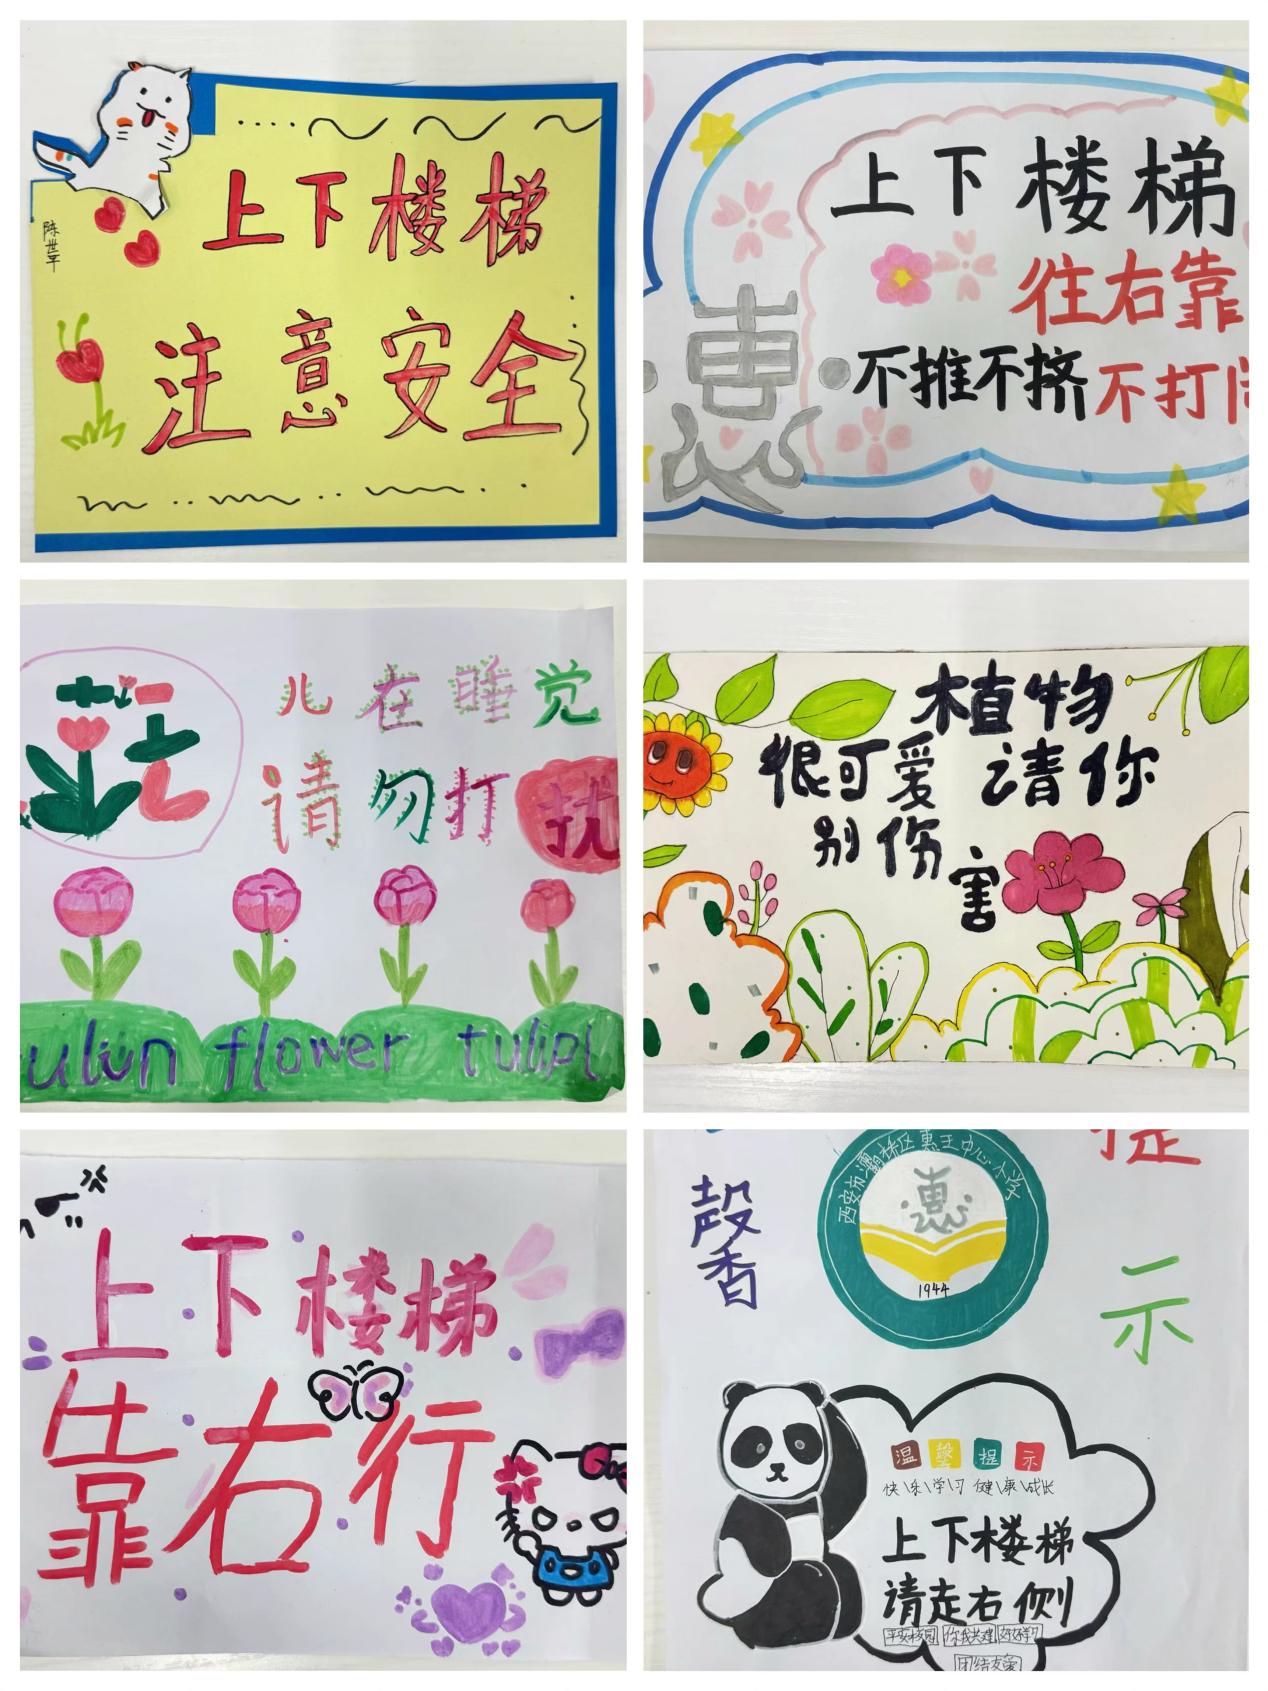 上下楼梯
注意安全
陈世平
上下楼梯
往右靠
不推不挤不打闹
惠
花儿在睡觉
请勿打扰
flower tulip
植物
很可爱 请你
别伤
害
上下楼梯
靠右行
提
示
馨香
西安市灞桥区惠王中心小学
惠
1944
温馨提示
快\乐\学\习 健\康\成长
上下楼梯
请走右侧
平安校园 你我共建 好好学习
团结友爱